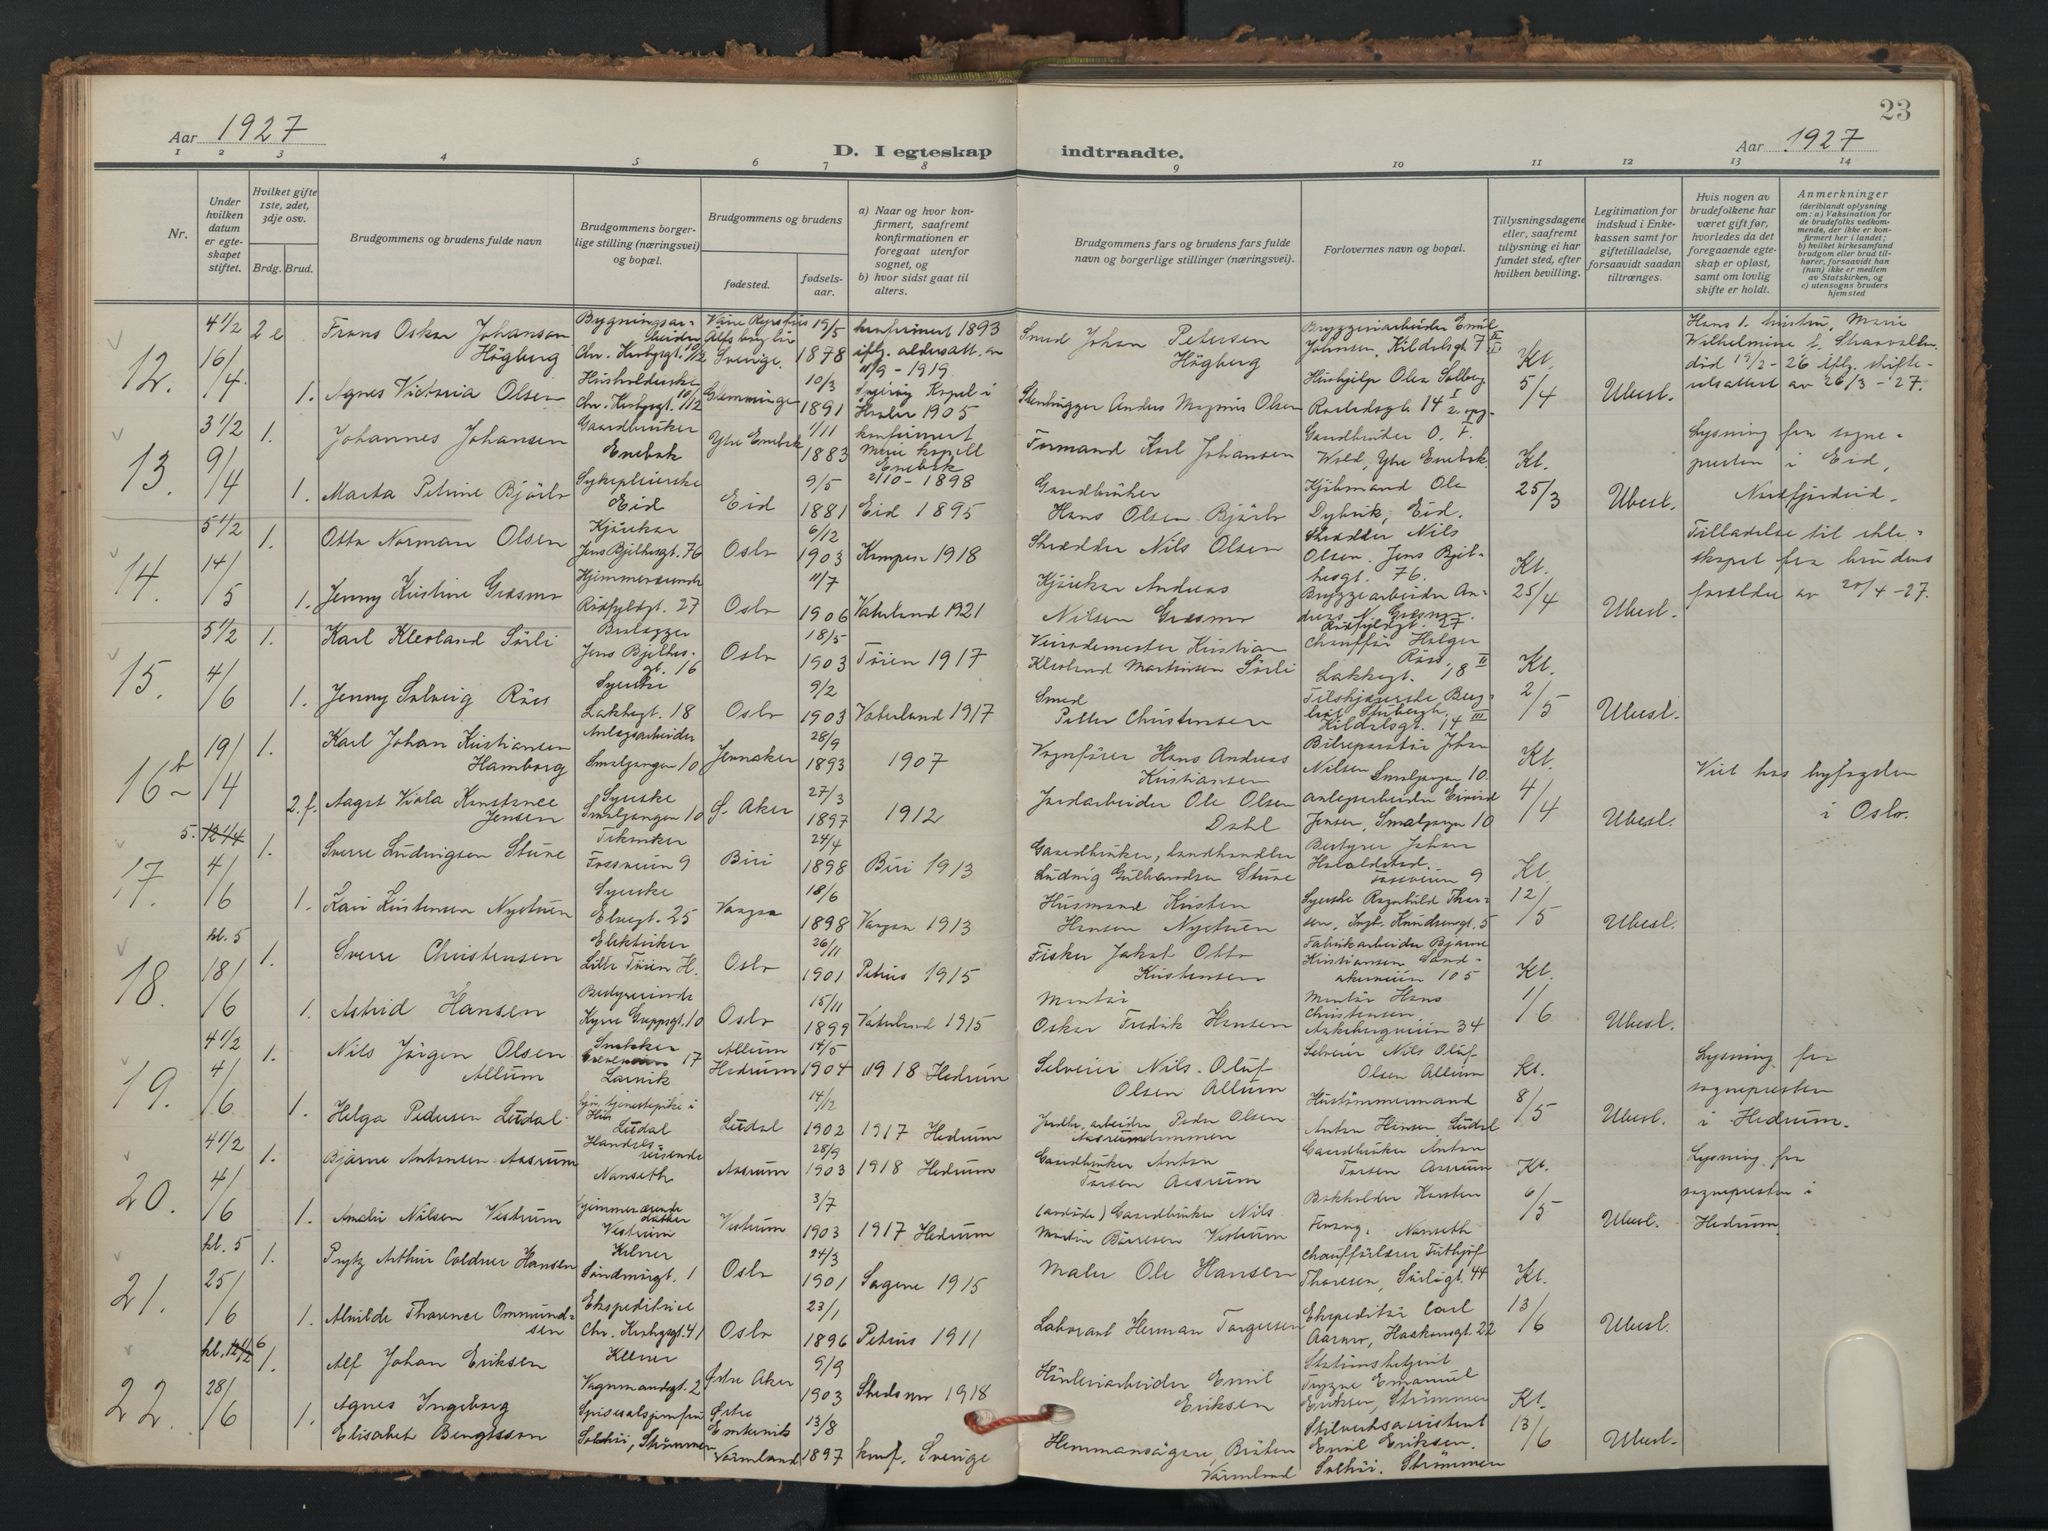 23
Aar 1927
D. I egteskap indtraadte.
Aar 1927
1 2 3 4 5 6 7 8 9 10 11 12 13 14
Nr.
Under hvilken datum er egteskapet stiftet.
Hvilket gifte 1ste, 2det, 3dje osv.
Brdg. Brud.
Brudgommens og brudens fulde navn
Brudgommens borgerlige stilling (næringsvei) og bopæl.
Brudgommens og brudens
fødested.
fødselsaar.
a) Naar og hvor konfirmert, saafremt konfirmationen er foregaat utenfor sognet, og
b) hvor sidst gaat til alters.
Brudgommens fars og brudens fars fulde navn og borgerlige stillinger (næringsvei).
Forlovernes navn og bopæl.
Tillysningsdagene eller, saafremt tillysning ei har fundet sted, efter hvilken bevilling.
Legitimation for indskud i Enkekassen samt for giftetilladelse, forsaavidt saadan tiltrænges.
Hvis nogen av brudefolkene har været gift før, hvorledes da det foregaaende egteskap er opløst, samt om lovlig skifte er holdt.
Anmerkninger
(deriblandt oplysning om: a) Vaksination for de brudefolks vedkommende, der ikke er konfirmert her i landet; b) hvilket kirkesamfund brudgom eller brud tilhører, forsaavidt han (hun) ikke er medlem av Statskirken, og c) utensogns bruders hjemsted
12. 4 1/2 16/4 2 e Frans Oskar Johanson Högberg Chr. Krohgsgt. 10/2 Sverige. 19/5 1878 konfirmert 1893 iflg. aldersatt. av 11/9 - 1919
Smed Johan Petersen Högberg Bryggeriarbeider Emil Johnsen, Kt. 5/4 Ubesl.
Hans 1. hustru, Marie Wilhelmine død 19/2 - 26 iflg. skifteutsattest av 26/3 - 27.
1. Agnes Victoria Olsen Husholderske Chr. Krohgsgt. 10/2 Glemminge 10/3 1891 Kapel i 1905
Stenhugger Anders Magnus Olsen Hushjelp Olea Solberg
13. 3 1/2 9/4 1. Johannes Johansen Gaardbruker Enebak Ytre Enebak 1/11 1883 konfirmert Mari kapell Enebak 2/10 - 1898
Formand Karl Johansen Gaardbruker O. F. Wold, Ytre Enebak. Kt. 25/3 Ubesl.
Lysning fra sognepresten i Eid, Nordfjordeid.
1. Marta Petrine Sykepleierske Eid Eid 9/5 1881 Eid 1895
Gaardbruker Hans Olsen Kjøbmand Ole Eid.
14. 5 1/2 14/5 1. Otto Norman Olsen Kjørekar Jens Bjelkesgt. 76 Oslo 6/12 1903 Kampen 1918
Skrædder Nils Olsen Skrædder Nils Olsen, Jens Bjelkesgt. 76. Kt. 25/4 Ubesl.
Tilladelse til ekteskapet fra brudens forældre av 20/4 - 27.
1. Jenny Kristine Græsmo Hjemmeværende Rosfyldgt. 27 Oslo 11/7 1906 Vaterland 1921
Kjørekar Andreas Nilsen Græsmo Bryggearbeider Andreas N. Græsmo
15. 5 1/2 4/6 1. Karl Klevland Sørli Jens Bjelkesgt. 16 Oslo 18/5 1903 Tøien 1917
Kristian Klevland Martinsen Sørli Chauffør Holger Røis Lakkegt. 18 II Kt. 2/5 Ubesl.
1. Jenny Solveig Røis Syerske Lakkegt. 18 Oslo 9/2 1903 Vaterland 1917
Smed Petter Christensen Kildalsgt. 14 III
16 b 19/4 1. Karl Johan Kristiansen Hamborg Anlægsarbeider Smalgangen 10 Jevnaker 28/9 1893 1907
Vognfører Hans Andreas Kristiansen Bilreparatør Johan Nilsen Smalgangen 10. Kt. 4/4 Ubesl.
Viet hos byfogden i Oslo.
2. f. Aagot Viola Konstanse Jensen Syerske Smalgangen 10 Ø. Aker 27/3 1897 1912
Jordarbeider Ole Olsen Dahl Anlegsarbeider Eivind Jensen, Smalgangen 10
17. 5. 4/6 1. Sverre Ludvigsen Stune Tekniker Fossveien 9 Biri 24/4 1898 Biri 1913
Gaardbruker, landhandler Ludvig Gulbrandsen Stune Bestyrer Johan Haraldstad Fossveien 9 Kt. 12/5 Ubesl.
1. Kari Kristensen Nystuen Syerske Elvegt. 25 Vangsa 18/6 1898 Vangsa 1913
Husmand Kristen Hansen Nystuen Syerske Ragnhild Thorsen, Ingb. Knudsensgt. 5
18. kl. 5 18/6 1. Sverre Christensen Elektriker Lille Tøien H. Oslo 26/11 1901 Petrus 1915
Fisker Jakob Otto Kristensen Fabrikarbeider Bjarne Kristiansen Sandakerveien 105 Kt. 1/6 Ubesl.
1. Astrid Hansen Bestyrerinde Kyrre Greppsgt. 10 Oslo 15/11 1899 Vaterland 1915
Montør Oskar Fredrik Hansen Montør Hans Christensen Aakebergveien 34
19. 4 1/2 4/6 1. Nils Jørgen Olsen Allum Snekker 17 Larvik Allum Hedrum 14/5 1904 1918 Hedrum
Selveier Nils Oluf Olsen Allum Selveier Nils Oluf Olsen Allum Kt. 8/5 Ubesl.
Lysning fra sognepresten i Hedrum.
1. Helga Pedersen Ludal tjenestepike i Ludal Ludal 14/12 1902 1917 Hedrum
Peder Olsen Hustømmermand Anton Hansen Ludal
20. 4 1/2 4/6 1. Bjarne Antonsen Aasrum Handelsreisende Nanseth Aasrum 28/9 1903 1918 Hedrum
Gaardbruker Anton Torsen Aasrum Gaardbruker Anton Torsen Aasrum Kt. 6/5 Ubesl.
Lysning fra sognepresten i Hedrum
1. Amalie Nilsen Vestrum hjemmeværende datter Vestrum Vestrum 3/7 1903 1917 Hedrum
(avdøde) Gaardbruker Nils Martin Børresen Vestrum Bokholder Karsten Nanseth
21. kl. 5 25/6 1. Prytz Arthur Coldner Hansen Kelner Søndmørgt. 1 Oslo 24/3 1901 Sagene 1915
Maler Ole Hansen Chaufførlærer Frithjof Thoresen, Sørligt. 44 Kt. 13/6 Ubesl.
1. Alvilde Thorence Ommundsen Ekspeditrice Chr. Krohgsgt. 41 Oslo 23/1 1896 Petrus 1911
Laborant Herman Torgersen Ekspeditør Carl Aarmo, Haakonsgt. 22
22. kl. 6 28/6 1. Alf Johan Eriksen Kelner Østre Aker 9/9 1903 Skedsmo 1918
Høvleriarbeider Emil Eriksen Stationsbetjent Trygve Emanuel Eriksen, Strømmen Kt. 13/6 Ubesl.
1. Agnes Ingeborg Elisabet Bengtsson Spisesalsjomfru Solhøi, Strømmen Östre Emtervik Värmland 13/8 1897 konf. Sverige
Hemmansägare, Bråten Värmland Stilverksassistent Emil Eriksen. Solhøi. Strømmen